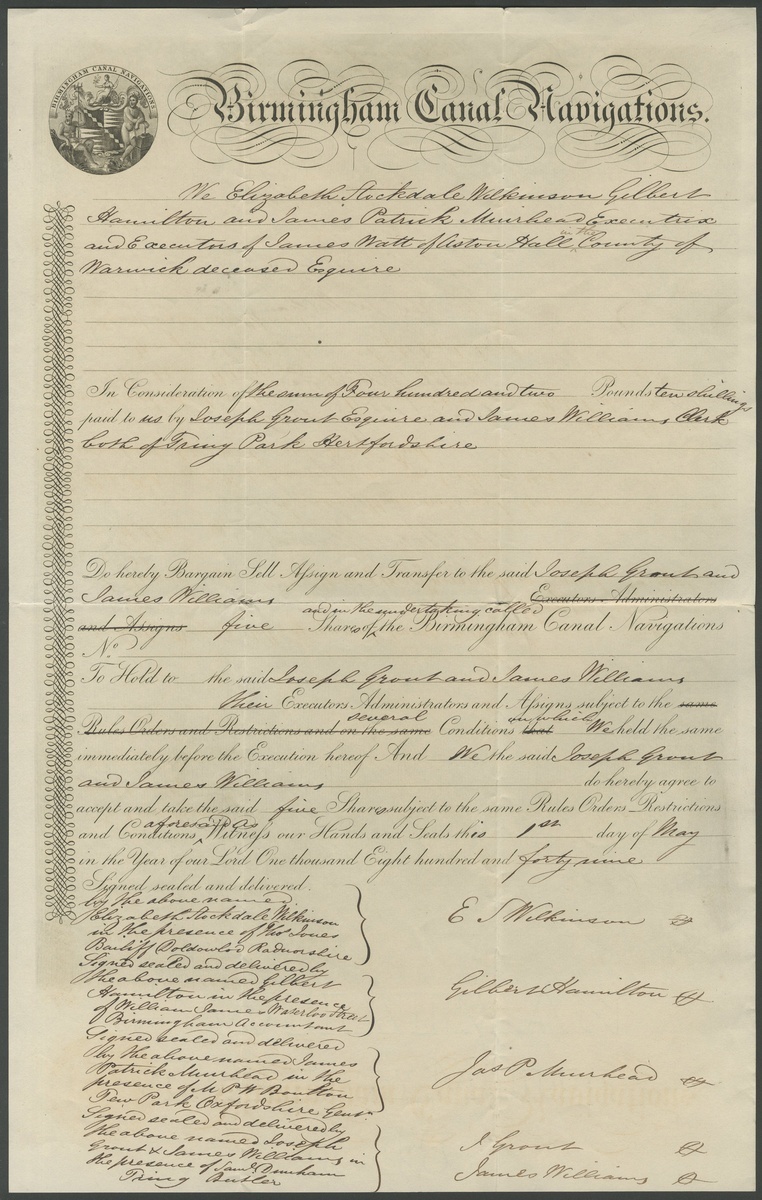 BIRMINGHAM CANAL NAVIGATIONS
Birmingham Canal Navigations.
We Elizabeth Stockdale Wilkinson Gilbert
Hamilton and James Patrick Muirhead Executrix
and Executors of James Watt of Aston Hall in the County of
Warwick deceased Esquire
In Consideration of the sum of Four hundred and two Pounds ten shillings
paid to us by Joseph Grout Esquire and James Williams Clerk
both of Tring Park Hertfordshire
Do hereby Bargain Sell Assign and Transfer to the said Joseph Grout and
James Williams Executors Administrators
and Assigns five Shares of and in the undertaking called the Birmingham Canal Navigations
No
To Hold to the said Joseph Grout and James Williams
their Executors Administrators and Assigns subject to the same
Rules Orders and Restrictions and on the same several Conditions that on which We held the same
immediately before the Execution hereof And We the said Joseph Grout
and James Williams do hereby agree to
accept and take the said five Shares subject to the same Rules Orders Restrictions
and Conditions aforesaid As Witness our Hands and Seals this 1st day of May
in the Year of our Lord One thousand Eight hundred and forty nine
Signed sealed and delivered.
by the above named
Elizabeth Stockdale Wilkinson
in the presence of Thos Jones
Bailiff Doldowlod Radnorshire
E S Wilkinson
Signed sealed and delivered by
the above named Gilbert
Hamilton in the presence
of William James Waterloo Street
Birmingham Accountant
Gilbert Hamilton
Signed sealed and delivered
by the above named James
Patrick Muirhead in the
presence of M P W Boulton
Tew Park Oxfordshire Gent
Jas P Muirhead
Signed sealed and delivered by
the above named Joseph
Grout & James Williams in
the presence of Saml Dunham
Tring Butler
J Grout
James Williams